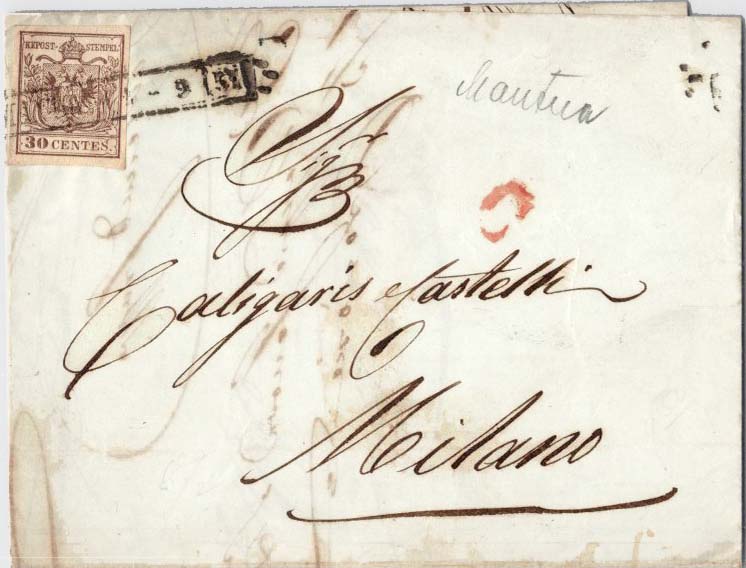 KKPOST-STEMPEL
30 CENTES.
Mantua
Sigr
Caligaris Castelli
Milano